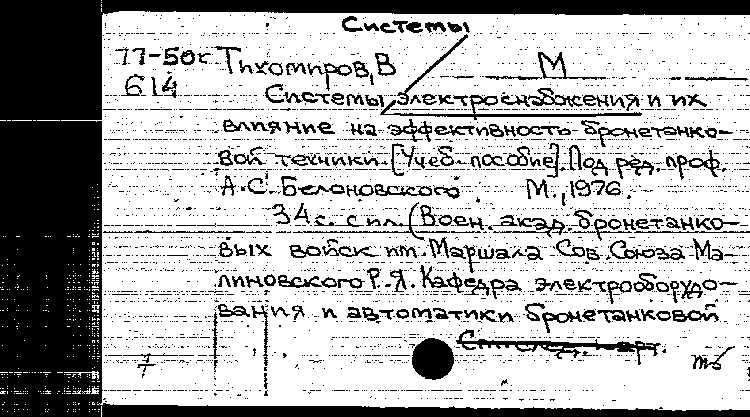 Системы
77-50с Тихомиров, В М
614
Системы электроснабжения и их
влияние на эффективность бронетанко-
вой техники. [Учеб. пособие]. Под ред. проф.
А.С. Белоновского. М., 1976.
34 с. с ил. (Воен. акад. бронетанко-
вых войск им. Маршала Сов. Союза Ма-
линовского Р.Я. Кафедра электрооборудо-
вания и автоматики бронетанковой